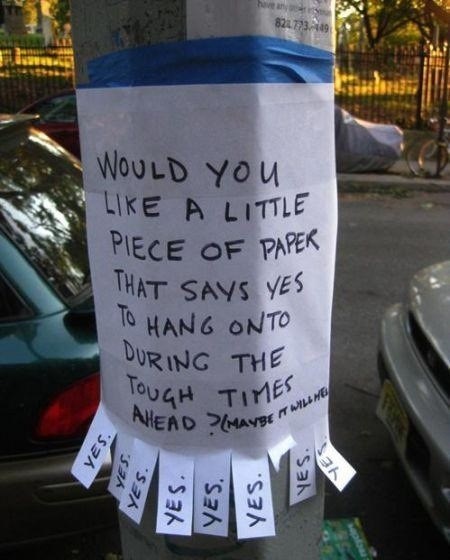 have any
WOULD YOU
LIKE A LITTLE
PIECE OF PAPER
THAT SAYS YES
TO HANG ONTO
DURING THE
TOUGH TIMES
AHEAD ? (MAYBE IT WILL HEL
YES.
YES.
YES.
YES.
YES.
YES.
YES.
YES